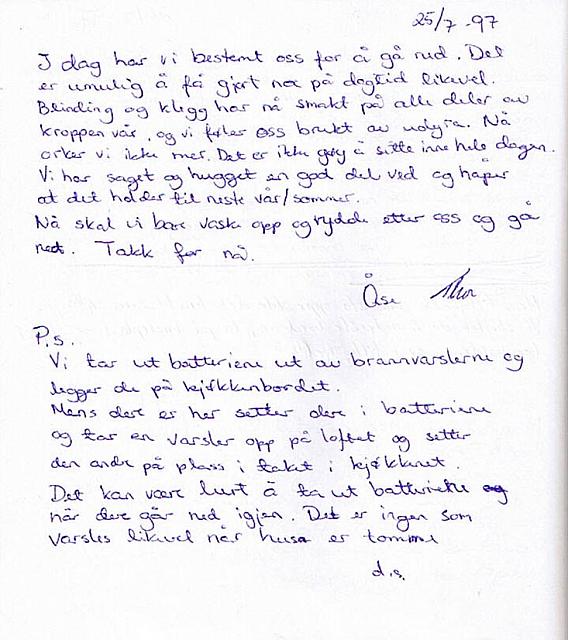 25/7-97
I dag har vi bestemt oss for å gå ned. Det
er umulig å få gjort noe på dagtid likevel.
Blinding og klegg har nå smakt på alle deler av
kroppen vår, og vi føler oss brukt av udyra. Nå
orker vi ikke mer. Det er ikke gøy å sitte inne hele dagen.
Vi har saget og hugget en god del ved og håper
at det holder til neste vår/sommer.
Nå skal vi bare vaske opp og rydde etter oss og gå
ned. Takk for nå.
Åse
P.s.
Vi tar ut batteriene ut av brannvarslerne og
legger de på kjøkkenbordet.
Mens dere er her setter dere i batteriene
og tar en varsler opp på loftet og setter
den andre på plass i taket i kjøkkenet.
Det kan være lurt å ta ut batteriene
når dere går ned igjen. Det er ingen som
varsles likevel når husa er tomme
d.s.